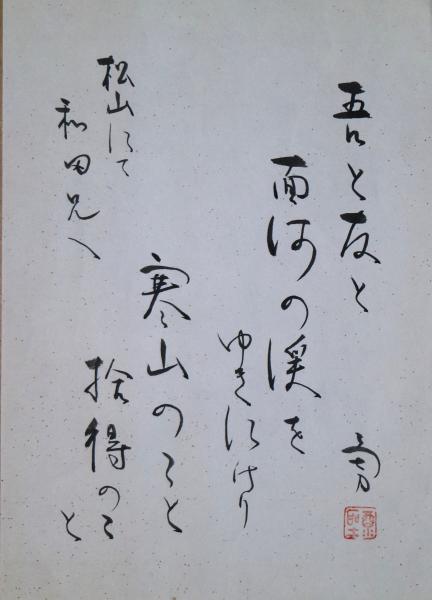 吾と友と
面河の渓を
ゆきにけり
寒山のこと
拾得のこ
と
松山にて
和田兄へ
勇